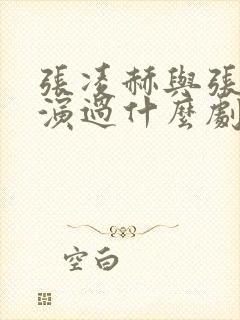 張凌赫與張
演過什麼劇
空白